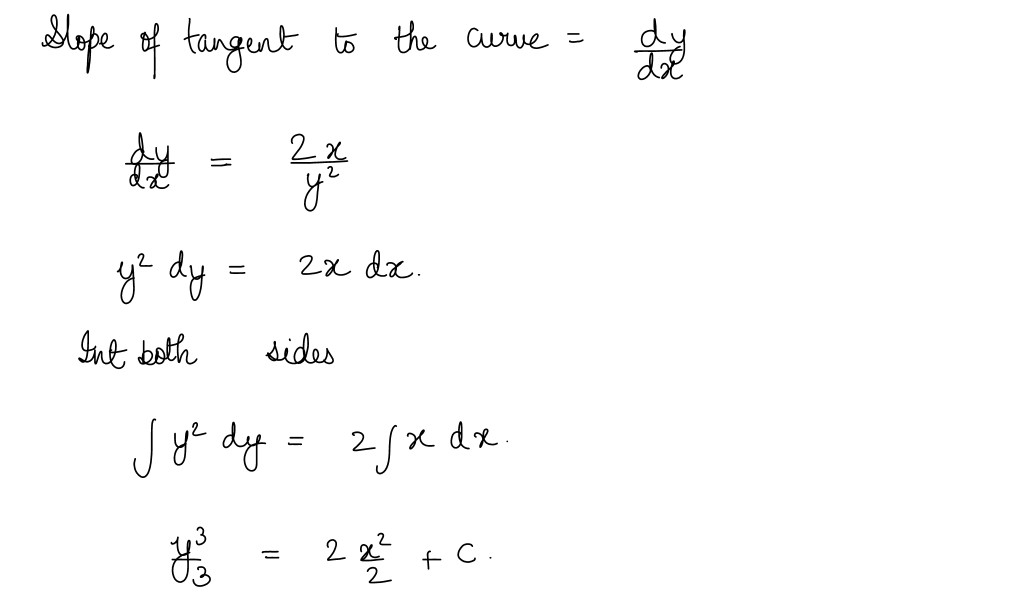 Slope of tangent to the curve = dy/dx
dy/dx = 2x/y²
y² dy = 2x dx.
Int both sides
∫ y² dy = 2∫ x dx.
y³/3 = 2 x²/2 + C.